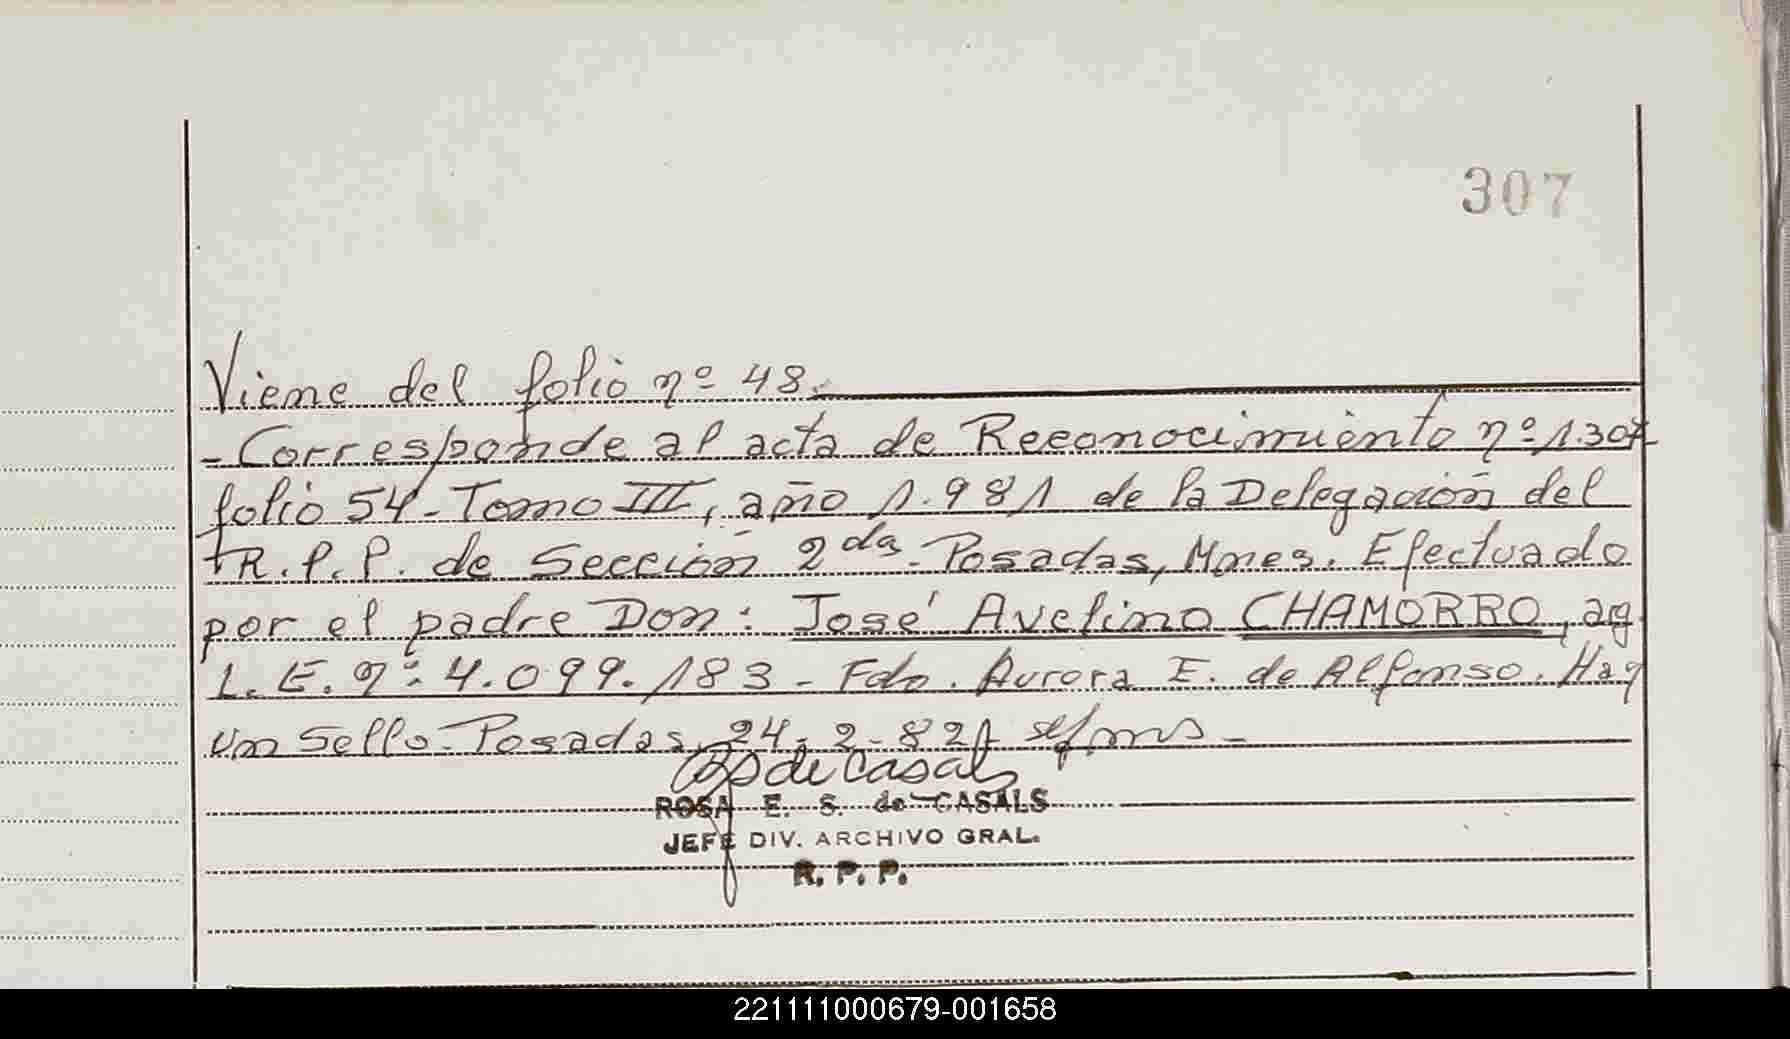 307
Viene del folio nº 48.
- Corresponde al acta de Reconocimiento nº 1.307
folio 54 - Tomo III, año 1.981 de la Delegación del
R.P.P. de Sección 2da - Posadas, Mnes. Efectuado
por el padre Don: José Avelino CHAMORRO, arg.
L.E. nº: 4.099.183 - Fdo. Aurora E. de Alfonso. Hay
un Sello - Posadas, 24-2-82
de Casals
ROSA E. S. de CASALS
JEFE DIV. ARCHIVO GRAL.
R. P. P.
221111000679-001658